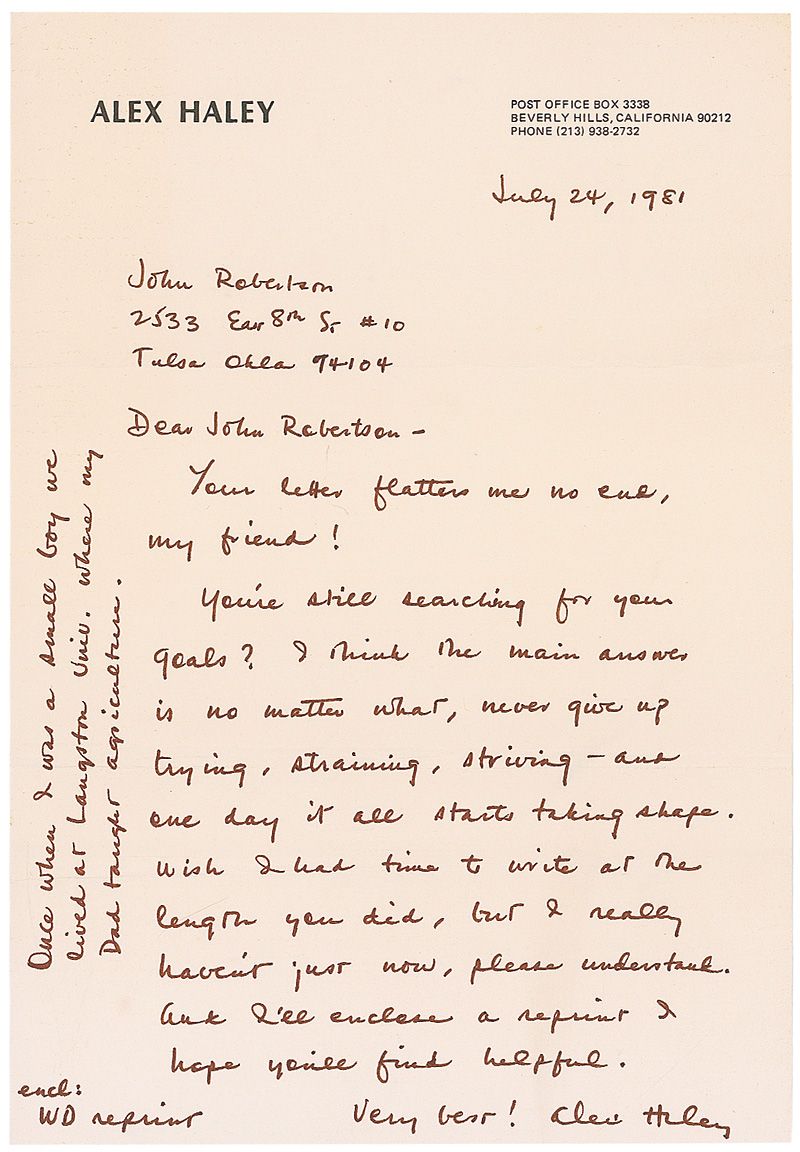 ALEX HALEY
POST OFFICE BOX 3338
BEVERLY HILLS, CALIFORNIA 90212
PHONE (213) 938-2732
July 24, 1981
John Robertson
2533 East 8th St #10
Tulsa Okla 94104
Dear John Robertson -
Your letter flatters me no end,
my friend!
You're still searching for your
goals? I think the main answer
is no matter what, never give up
trying, straining, striving - and
one day it all starts taking shape.
Wish I had time to write at the
length you did, but I really
haven't just now, please understand.
And I'll enclose a reprint I
hope you'll find helpful.
Very best! Alex Haley
encl:
WD reprint
Once when I was a small boy we
lived at Langston Univ. where my
Dad taught agriculture.